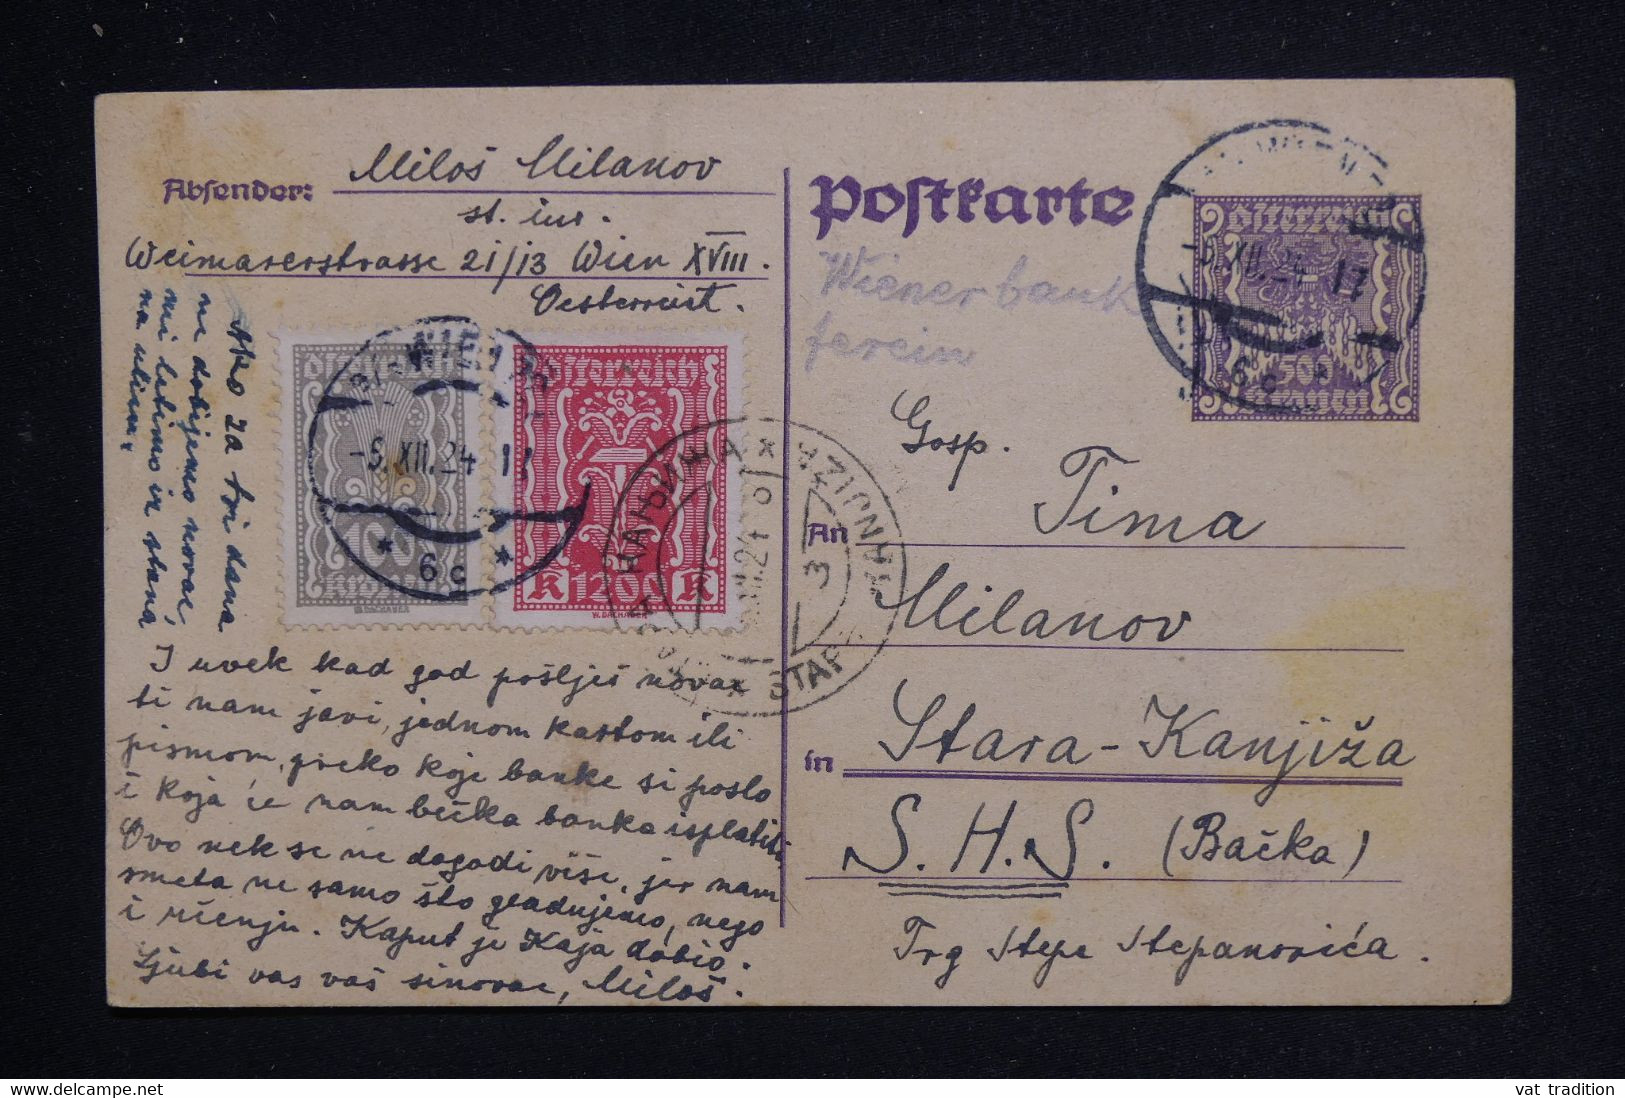 Miloš Milanov
Absender:
st. iur.
Weimarerstrasse 21/13 Wien XVIII.
Oesterreich.
Ako za tri dana
ne dobijemo novac,
mi letimo iz stana
na ulicu.
Österreich
100
Kronen
W. DACHAUER
Österreich
K 1200 K
W. DACHAUER
WIEN
-5.XII.24 17
* 6c *
СТАРА КАЊИЖА
STARA KANJIZA
I uvek kad god pošlješ novac
ti nam javi, jednom kartom ili
pismom, preko koje banke si poslo
i koja će nam bečka banka isplatiti.
Ovo nek se ne dogodi više, jer nam
smeta ne samo što gladujemo, nego
i učenju. Kaput je Kaja dobio.
Ljubi vas vaš sinovac, Miloš.
Postkarte
Wiener bank
ferein
Österreich
500
Kronen
-5.XII.24 17
* 6c *
Gosp.
An Tima
Milanov
in Stara-Kanjiža
S.H.S. (Bačka)
Trg Stepe Stepanovića.
vat tradition